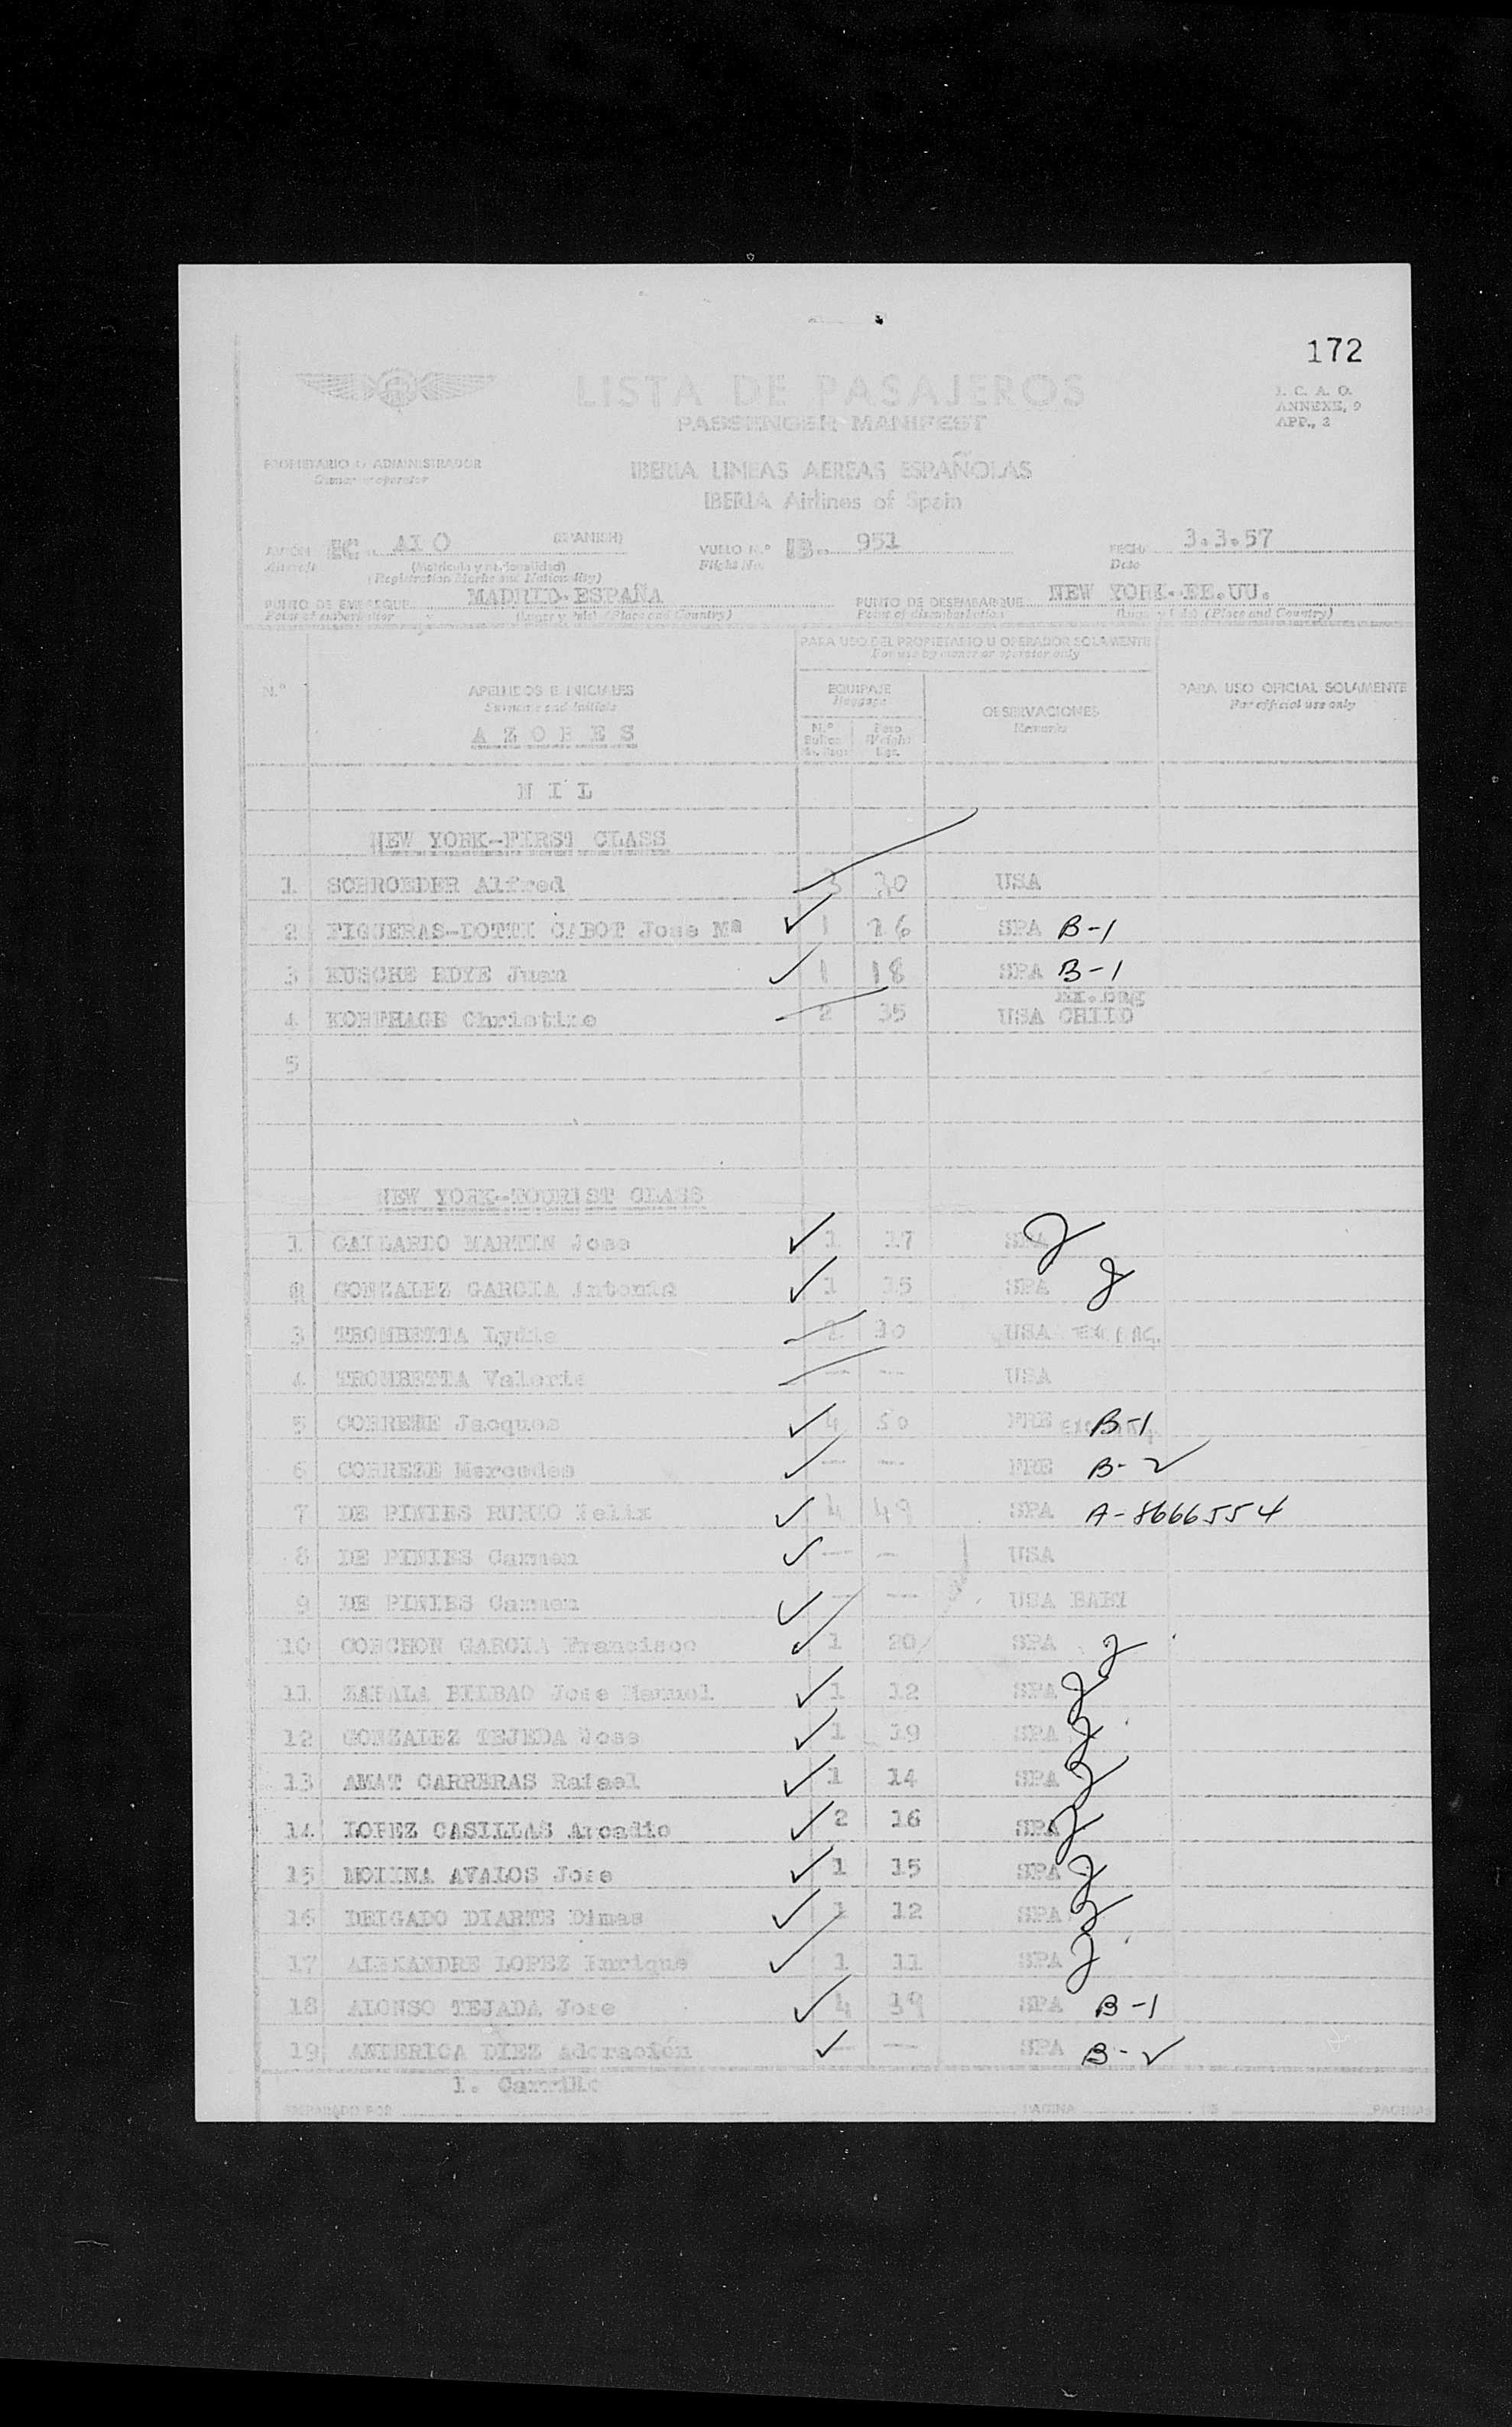 172
LISTA DE PASAJEROS
PASSENGER MANIFEST
I. C. A. O.
ANNEXE, 9
APP., 2
PROPIETARIO O ADMINISTRADOR
Owner or operator
IBERIA LINEAS AEREAS ESPAÑOLAS
IBERIA Airlines of Spain
AVION EC (SPANISH) VUELO N.º IB. 951 FECHA 3.3.57
Aircraft (Matrícula y nacionalidad) Flight No. Date
(Registration Marks and Nationality)
PUNTO DE EMBARQUE MADRID-ESPAÑA PUNTO DE DESEMBARQUE NEW YORK.-EE.UU.
Point of embarkation (Lugar y País) (Place and Country) Point of disembarkation (Lugar y País) (Place and Country)
PARA USO DEL PROPIETARIO U OPERADOR SOLAMENTE
For use by owner or operator only
N.º APELLIDOS E INICIALES EQUIPAJE OBSERVACIONES PARA USO OFICIAL SOLAMENTE
Surname and Initials Baggage Remarks For official use only
AZORES N.º Bultos Peso Weight Kgs.
NIL
NEW YORK-FIRST CLASS
1 SCHROEDER Alfred 3 30 USA
2 FIGUERAS-DOTTI CABOT Jose Mª 1 26 SPA B-1
3 KUSCHE EDYE Juan 1 18 SPA B-1
4 KORFHAGE Christine 2 35 USA CHILD
5
NEW YORK-TOURIST CLASS
1 GALLARDO MARTIN Jose 1 17 SPA
2 GONZALEZ GARCIA Antonio 1 15 SPA
3 TROMBETTA Lydia 2 30 USA
4 TROMBETTA Valerie — — USA
5 CORREZE Jacques 4 50 FRE B-1
6 CORREZE Mercedes — — FRE B-2
7 DE PINIES RUBIO Felix 4 49 SPA A-8666554
8 DE PINIES Carmen — — USA
9 DE PINIES Carmen — — USA BABY
10 CORCHON GARCIA Francisco 1 20 SPA
11 ZABALA BILBAO Jose Manuel 1 12 SPA
12 GONZALEZ TEJEDA Jose 1 19 SPA
13 AMAT CARRERAS Rafael 1 14 SPA
14 LOPEZ CASILLAS Arcadio 2 16 SPA
15 MOLINA AVALOS Jose 1 15 SPA
16 DELGADO DIARTE Dimas 1 12 SPA
17 ALEXANDRE LOPEZ Enrique 1 11 SPA
18 ALONSO TEJADA Jose 4 39 SPA B-1
19 DIEZ Adoración — — SPA B-2
PREPARADO POR PAGINA DE PAGINAS